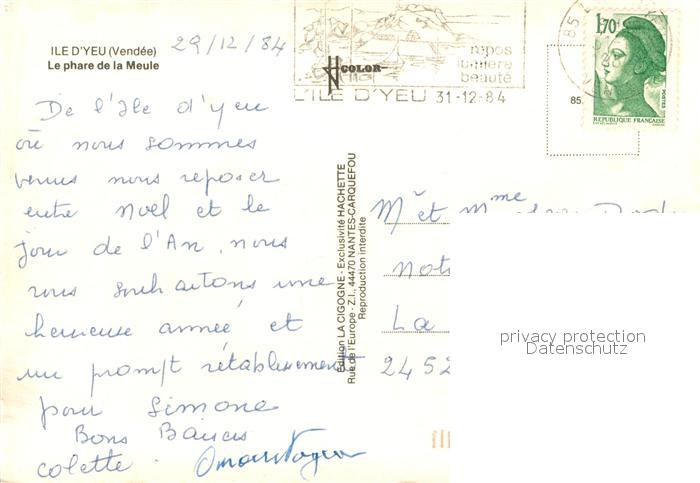 ILE D'YEU (Vendée)
Le phare de la Meule
29/12/84
De l'Ile d'yeu
où nous sommes
venus nous reposer
entre Noël et le
jour de l'An, nous
vous souhaitons une
heureuse année et
un prompt rétablissement
pour Simone
Bons Baisers
Colette.
COLOR
repos
lumière
beauté
L'ILE D'YEU 31-12-84
85
1,70
POSTES
REPUBLIQUE FRANÇAISE
85.
Edition LA CIGOGNE - Exclusivité HACHETTE
Rue de l'Europe - Z.I., 44470 NANTES-CARQUEFOU
Reproduction interdite
Mr et Mme
Not
La
2452
privacy protection
Datenschutz